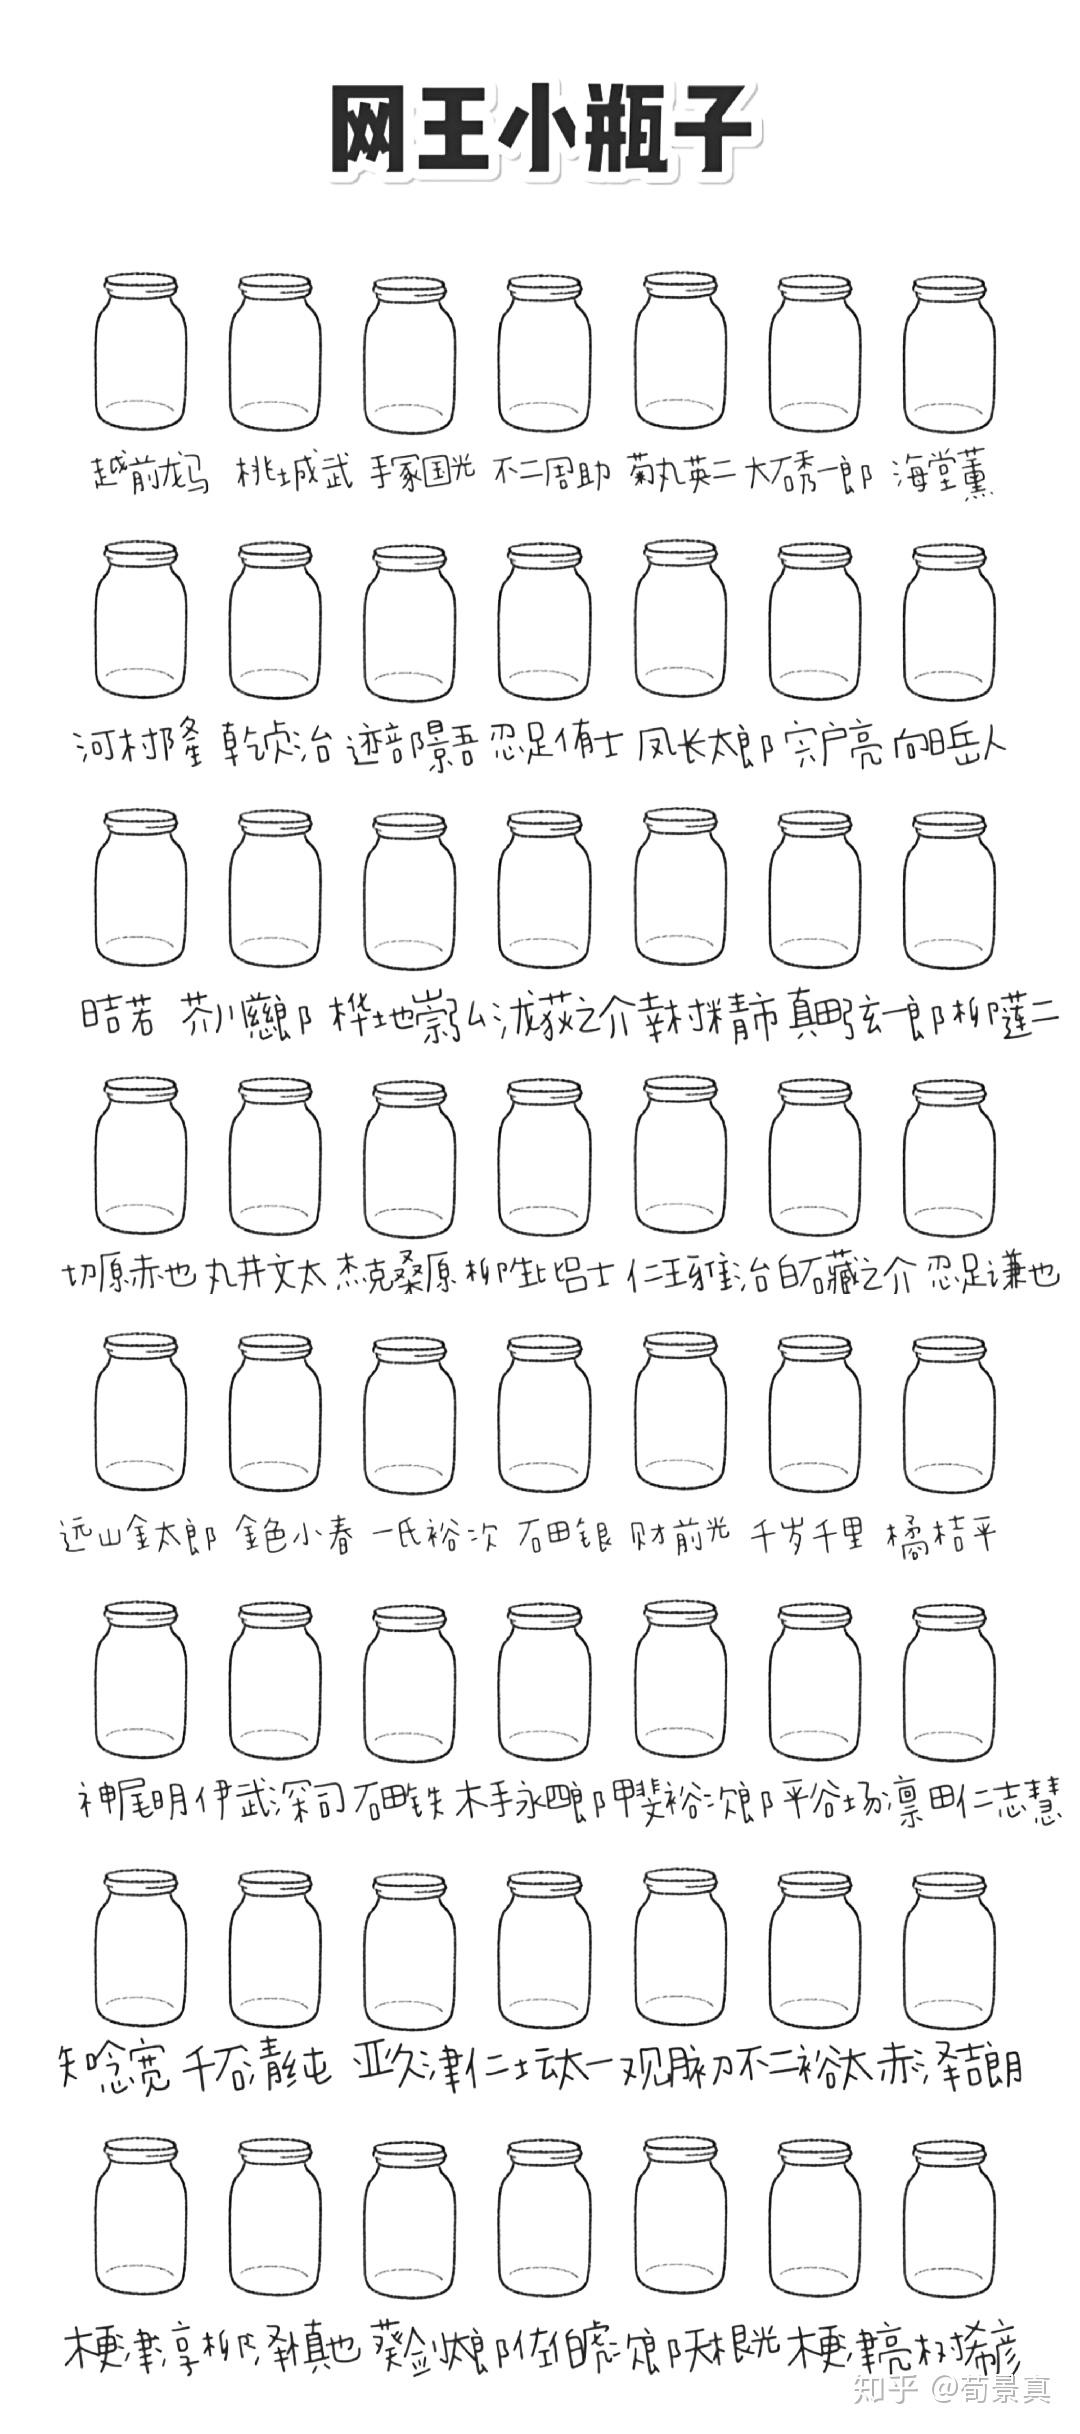 网王小瓶子
越前龙马 桃城武 手冢国光 不二周助 菊丸英二 大石秀一郎 海堂薰
河村隆 乾贞治 迹部景吾 忍足侑士 凤长太郎 宍户亮 向日岳人
日吉若 芥川慈郎 桦地崇弘 泷荻之介 幸村精市 真田弦一郎 柳莲二
切原赤也 丸井文太 杰克桑原 柳生比吕士 仁王雅治 白石藏之介 忍足谦也
远山金太郎 金色小春 一氏裕次 石田银 财前光 千岁千里 橘桔平
神尾明 伊武深司 石田铁 木手永四郎 甲斐裕次郎 平谷场凛 田仁志慧
知念宽 千石清纯 亚久津仁 坛太一 观月初 不二裕太 赤泽吉朗
木更津淳 柳泽慎也 葵剑太郎 佐伯虎次郎 天根光 木更津亮 树希彦
知乎 @荀景真